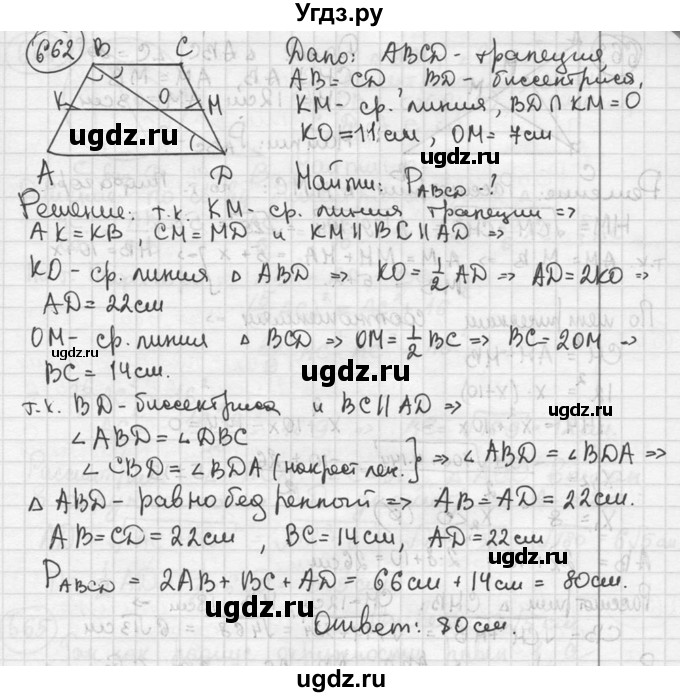 Угдз.ру
662
B C
Дано: ABCD - трапеция
AB = CD, BD - биссектриса,
K O M
KM - ср. линия, BD ∩ KM = O
ugdz.ru
KO = 11 см, OM = 7 см
ugdz.ru
A D
Найти: P ABCD ?
Решение: т.к. KM - ср. линия трапеции =>
AK = KB, CM = MD и KM || BC || AD =>
KO - ср. линия △ ABD => KO = 1/2 AD => AD = 2KO =>
AD = 22 см
ugdz.ru
OM - ср. линия △ BCD => OM = 1/2 BC => BC = 2OM →
ugdz.ru
BC = 14 см.
ugdz.ru
т.к. BD - биссектриса и BC || AD =>
ugdz.ru
∠ABD = ∠DBC
∠CBD = ∠BDA (накрест леж.] => ∠ABD = ∠BDA =>
ugdz.ru
△ ABD - равнобедренный => AB = AD = 22 см.
AB = CD = 22 см, BC = 14 см, AD = 22 см
ugdz.ru
P ABCD = 2AB + BC + AD = 66 см + 14 см = 80 см.
ugdz.ru
ugdz.ru
Ответ: 80 см.
ugdz.ru
ugdz.ru